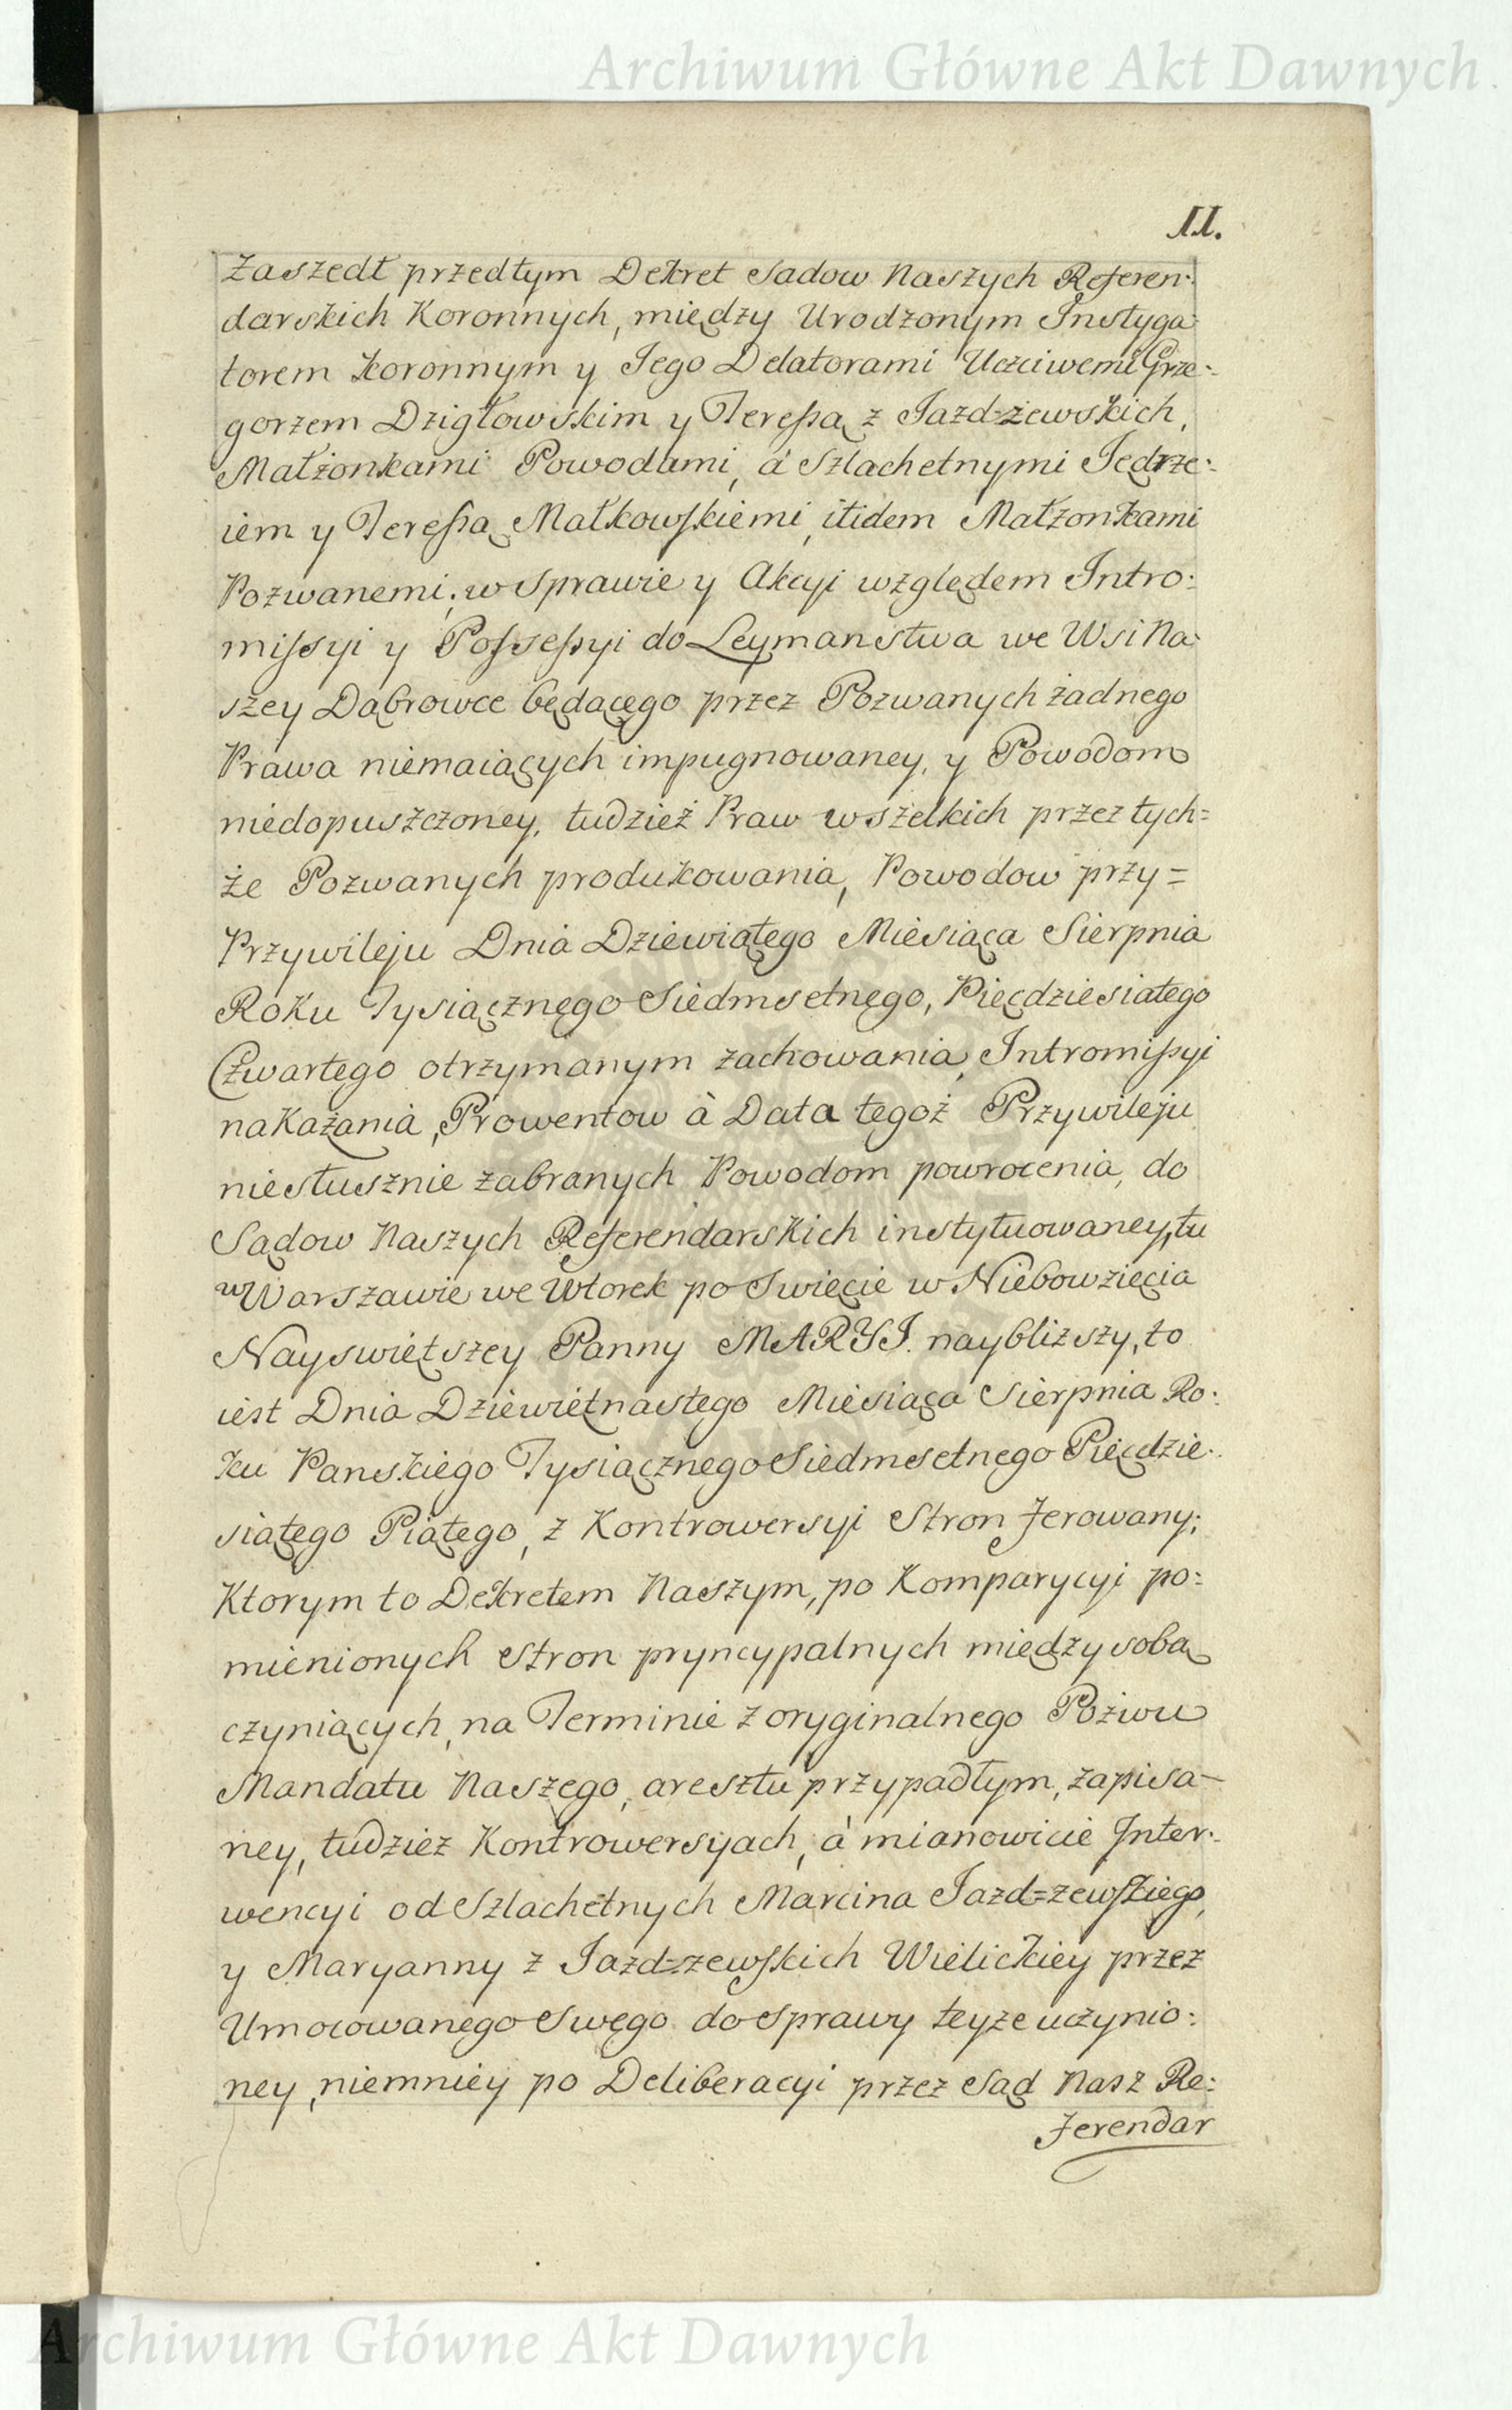 Archiwum Główne Akt Dawnych
11.
Zaszedł przedtym Dekret Sadow Naszych Referen:
darskich Koronnych, między Urodzonym Instyga:
torem Koronnym y Jego Delatorami Uczciwemi Grze:
gorzem Dzigłowskim y Teressą z Jazd=żewskich,
Małżonkami Powodami, á Szlachetnymi Jędrze:
iem y Teressą Małkowskiemi, itidem Małżonkami
Pozwanemi; w Sprawie y Akcyi względem Intro:
missyi y Possessyi do Leymanstwa we Wsi Na:
szey Dąbrowce będącego przez Pozwanych żadnego
Prawa niemaiących impugnowaney, y Powodom
niedopuszczoney, tudzież Praw wszelkich przez tych=
że Pozwanych produkowania, Powodow przy=
Przywileju Dnia Dziewiątego Miesiąca Sierpnia
Roku Tysiącznego Siedmsetnego, Pięcdziesiatego
Czwartego otrzymanym zachowania, Intromissyi
nakazania, Prowentow à Data tegoż Przywileju
niesłusznie zabranych Powodom powrocenia, do
Sądow Naszych Referendarskich instytuowaney, tu
w Warszawie we Wtorek po Swięcie w Niebowzięcia
Nayswiętszey Panny MARYI. naybliższy, to
iest Dnia Dziewiętnastego Miesiąca Sierpnia Ro:
ku Panskiego Tysiącznego Siedmsetnego Pięcdzie:
siątego Piątego, z Kontrowersyi Stron ferowany;
Ktorym to Dekretem Naszym, po Komparycyi po:
mienionych Stron pryncypalnych między sobą
czyniących, na Terminie z oryginalnego Pozwu
Mandatu Naszego, aresztu przypadłym, zapisa-
ney, tudzież Kontrowersyach, à mianowicie Inter:
wencyi od Szlachetnych Marcina Jazd=zewskiego,
y Maryanny z Jazd=zewskich Wielickiey przez
Umocowanego Swego do Sprawy teyże uczynio:
ney, niemniey po Deliberacyi przez Sąd Nasz Re:
ferendar
Archiwum Główne Akt Dawnych